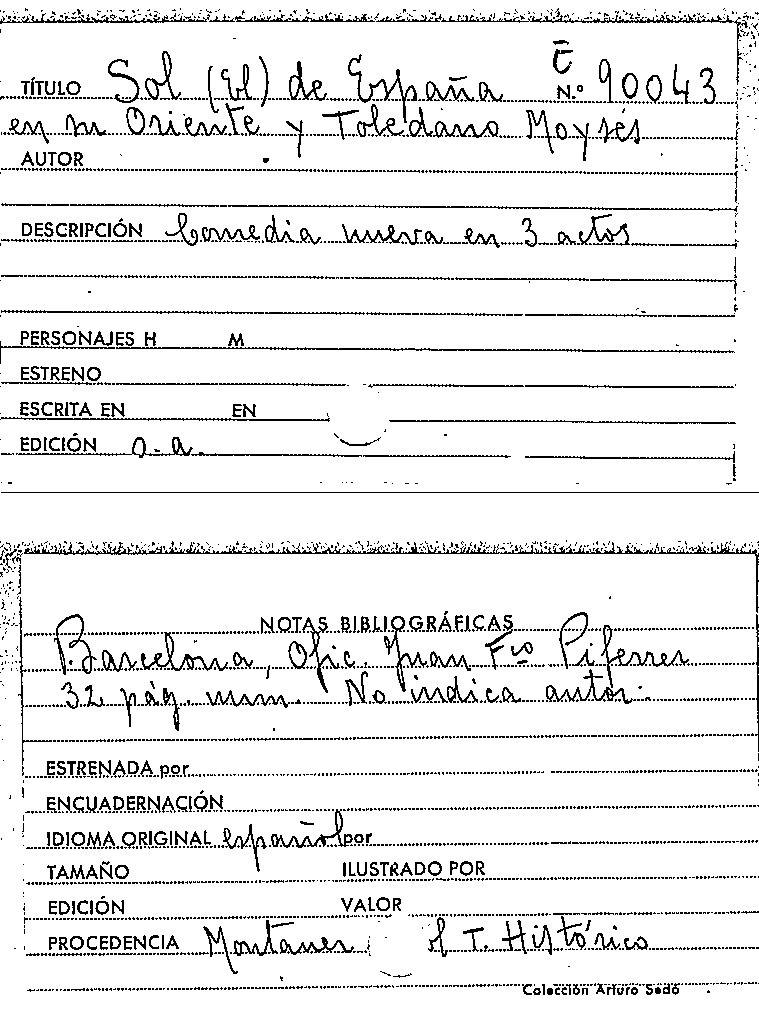 TÍTULO Sol (El) de España E N.º 90043
en su Oriente y Toledano Moysés
AUTOR
DESCRIPCIÓN Comedia nueva en 3 actos
PERSONAJES H M
ESTRENO
ESCRITA EN EN
EDICIÓN o.a.
NOTAS BIBLIOGRÁFICAS
Barcelona, Ofic. Juan Fco Piferrer
32 pág. num. No indica autor.
ESTRENADA por
ENCUADERNACIÓN
IDIOMA ORIGINAL español por
TAMAÑO ILUSTRADO POR
EDICIÓN VALOR
PROCEDENCIA Montaner T. Histórico
Colección Arturo Sedó